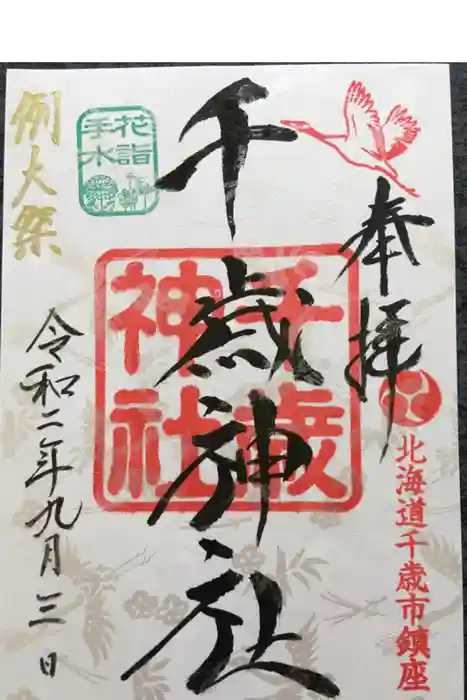 奉拝
北海道千歳市鎮座
千歳神社
千歳
神社
花詣
手水
例大祭
令和二年九月三日